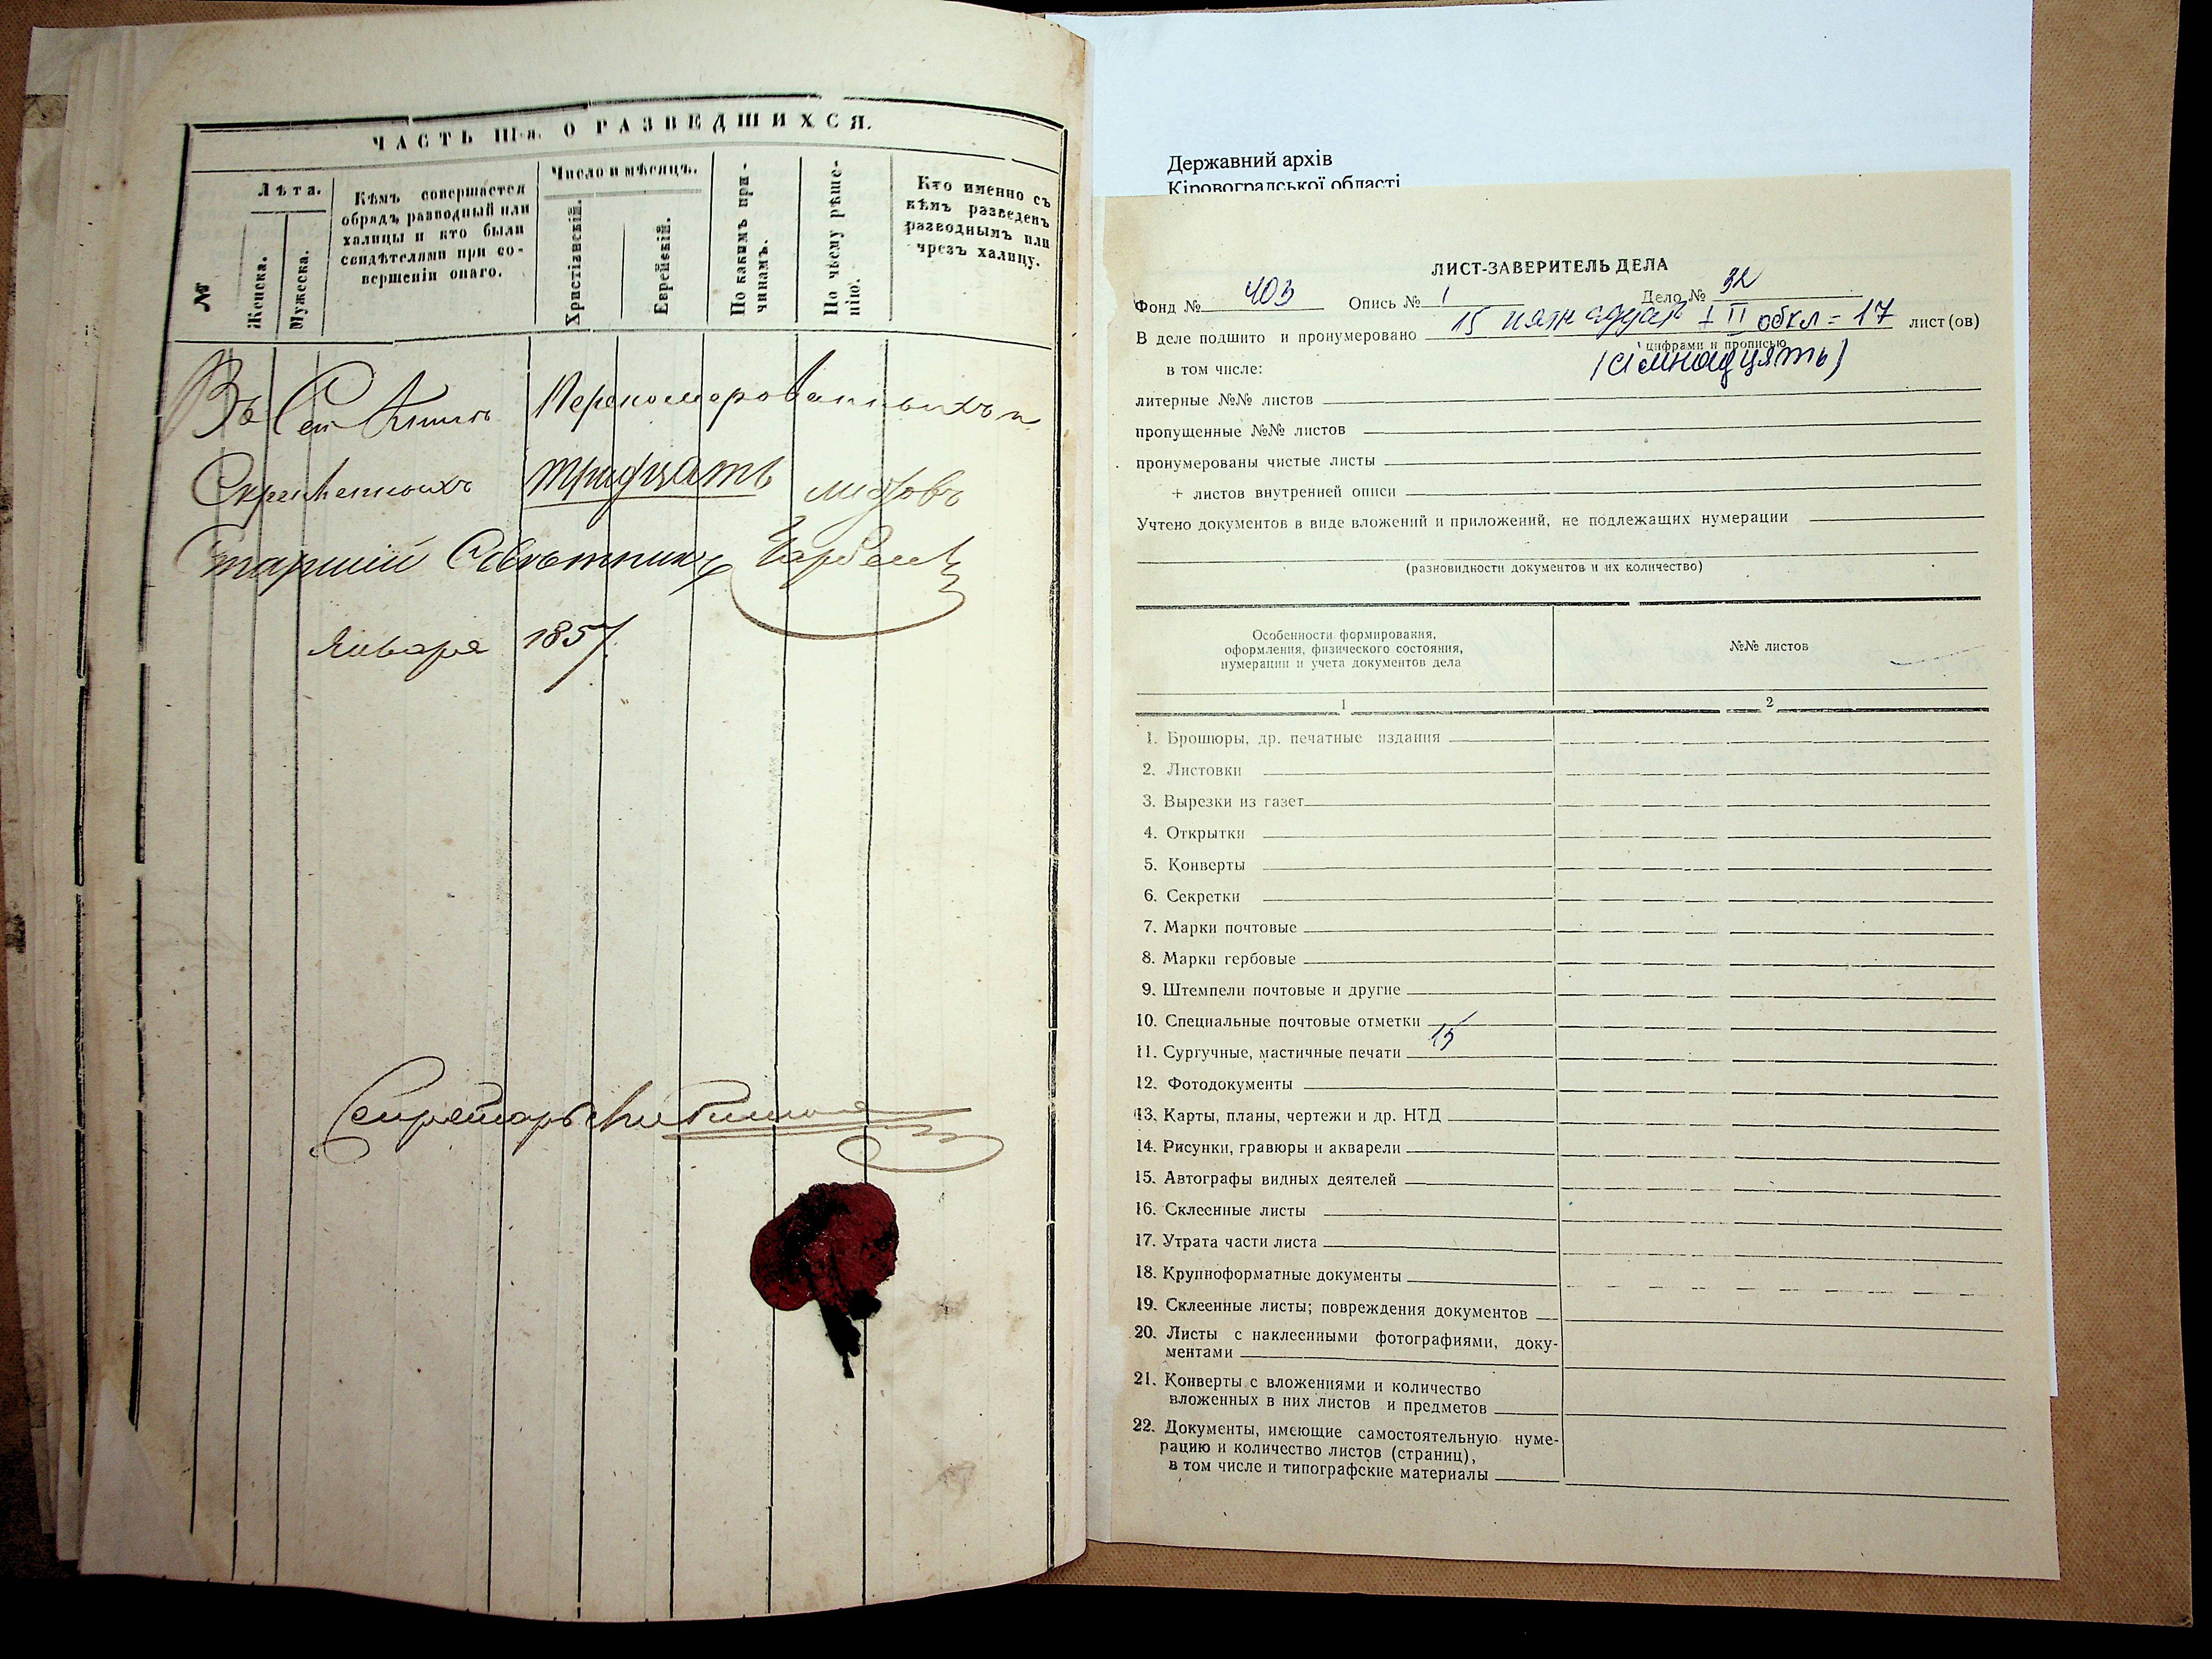 ЧАСТЬ III-я. О РАЗВЕДШИХСЯ.
№
Лѣта.
Женска.
Мужеска.
Кѣмъ совершается
обрядъ разводный или
халицы и кто были
свидѣтелями при со-
вершеніи онаго.
Число и мѣсяцъ.
Христіанскій.
Еврейскій.
По какимъ при-
чинамъ.
По чьему рѣше-
нію.
Кто именно съ
кѣмъ разведенъ
разводнымъ или
чрезъ халицу.
Въ Сей Книгѣ Перенумерованныхъ и
Скрепленныхъ тридцать листовъ
Старшій Совѣтникъ
Января 1857.
Секретарь
Державний архів
Кіровоградської області
ЛИСТ-ЗАВЕРИТЕЛЬ ДЕЛА
Фонд № 403 Опись № 1 Дело № 32
В деле подшито и пронумеровано 15 I II обкл = 17 лист(ов)
цифрами и прописью
в том числе: (сімнадцять)
литерные №№ листов
пропущенные №№ листов
пронумерованы чистые листы
+ листов внутренней описи
Учтено документов в виде вложений и приложений, не подлежащих нумерации
(разновидности документов и их количество)
Особенности формирования,
оформления, физического состояния,
нумерации и учета документов дела
№№ листов
1 2
1. Брошюры, др. печатные издания
2. Листовки
3. Вырезки из газет
4. Открытки
5. Конверты
6. Секретки
7. Марки почтовые
8. Марки гербовые
9. Штемпели почтовые и другие
10. Специальные почтовые отметки
11. Сургучные, мастичные печати 15
12. Фотодокументы
13. Карты, планы, чертежи и др. НТД
14. Рисунки, гравюры и акварели
15. Автографы видных деятелей
16. Склеенные листы
17. Утрата части листа
18. Крупноформатные документы
19. Склеенные листы; повреждения документов
20. Листы с наклеенными фотографиями, доку-
ментами
21. Конверты с вложениями и количество
вложенных в них листов и предметов
22. Документы, имеющие самостоятельную нуме-
рацию и количество листов (страниц),
в том числе и типографские материалы